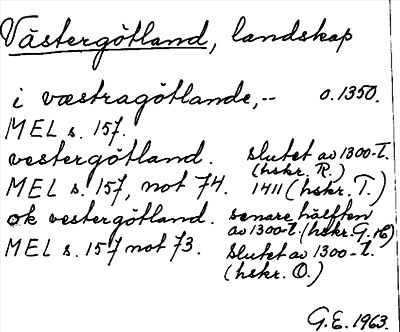 Västergötland, landskap
i væstragötlande,-- o.1350.
MEL s. 157.
vestergötland. slutet av 1300-t.
(hskr. R.)
MEL s. 157, not 74. 1411 (hskr. T.)
ok vestergötland. senare hälften
av 1300-t. (hskr. G. H)
MEL s. 157 not 73. slutet av 1300-t.
(hskr. O.)
G.E. 1963.